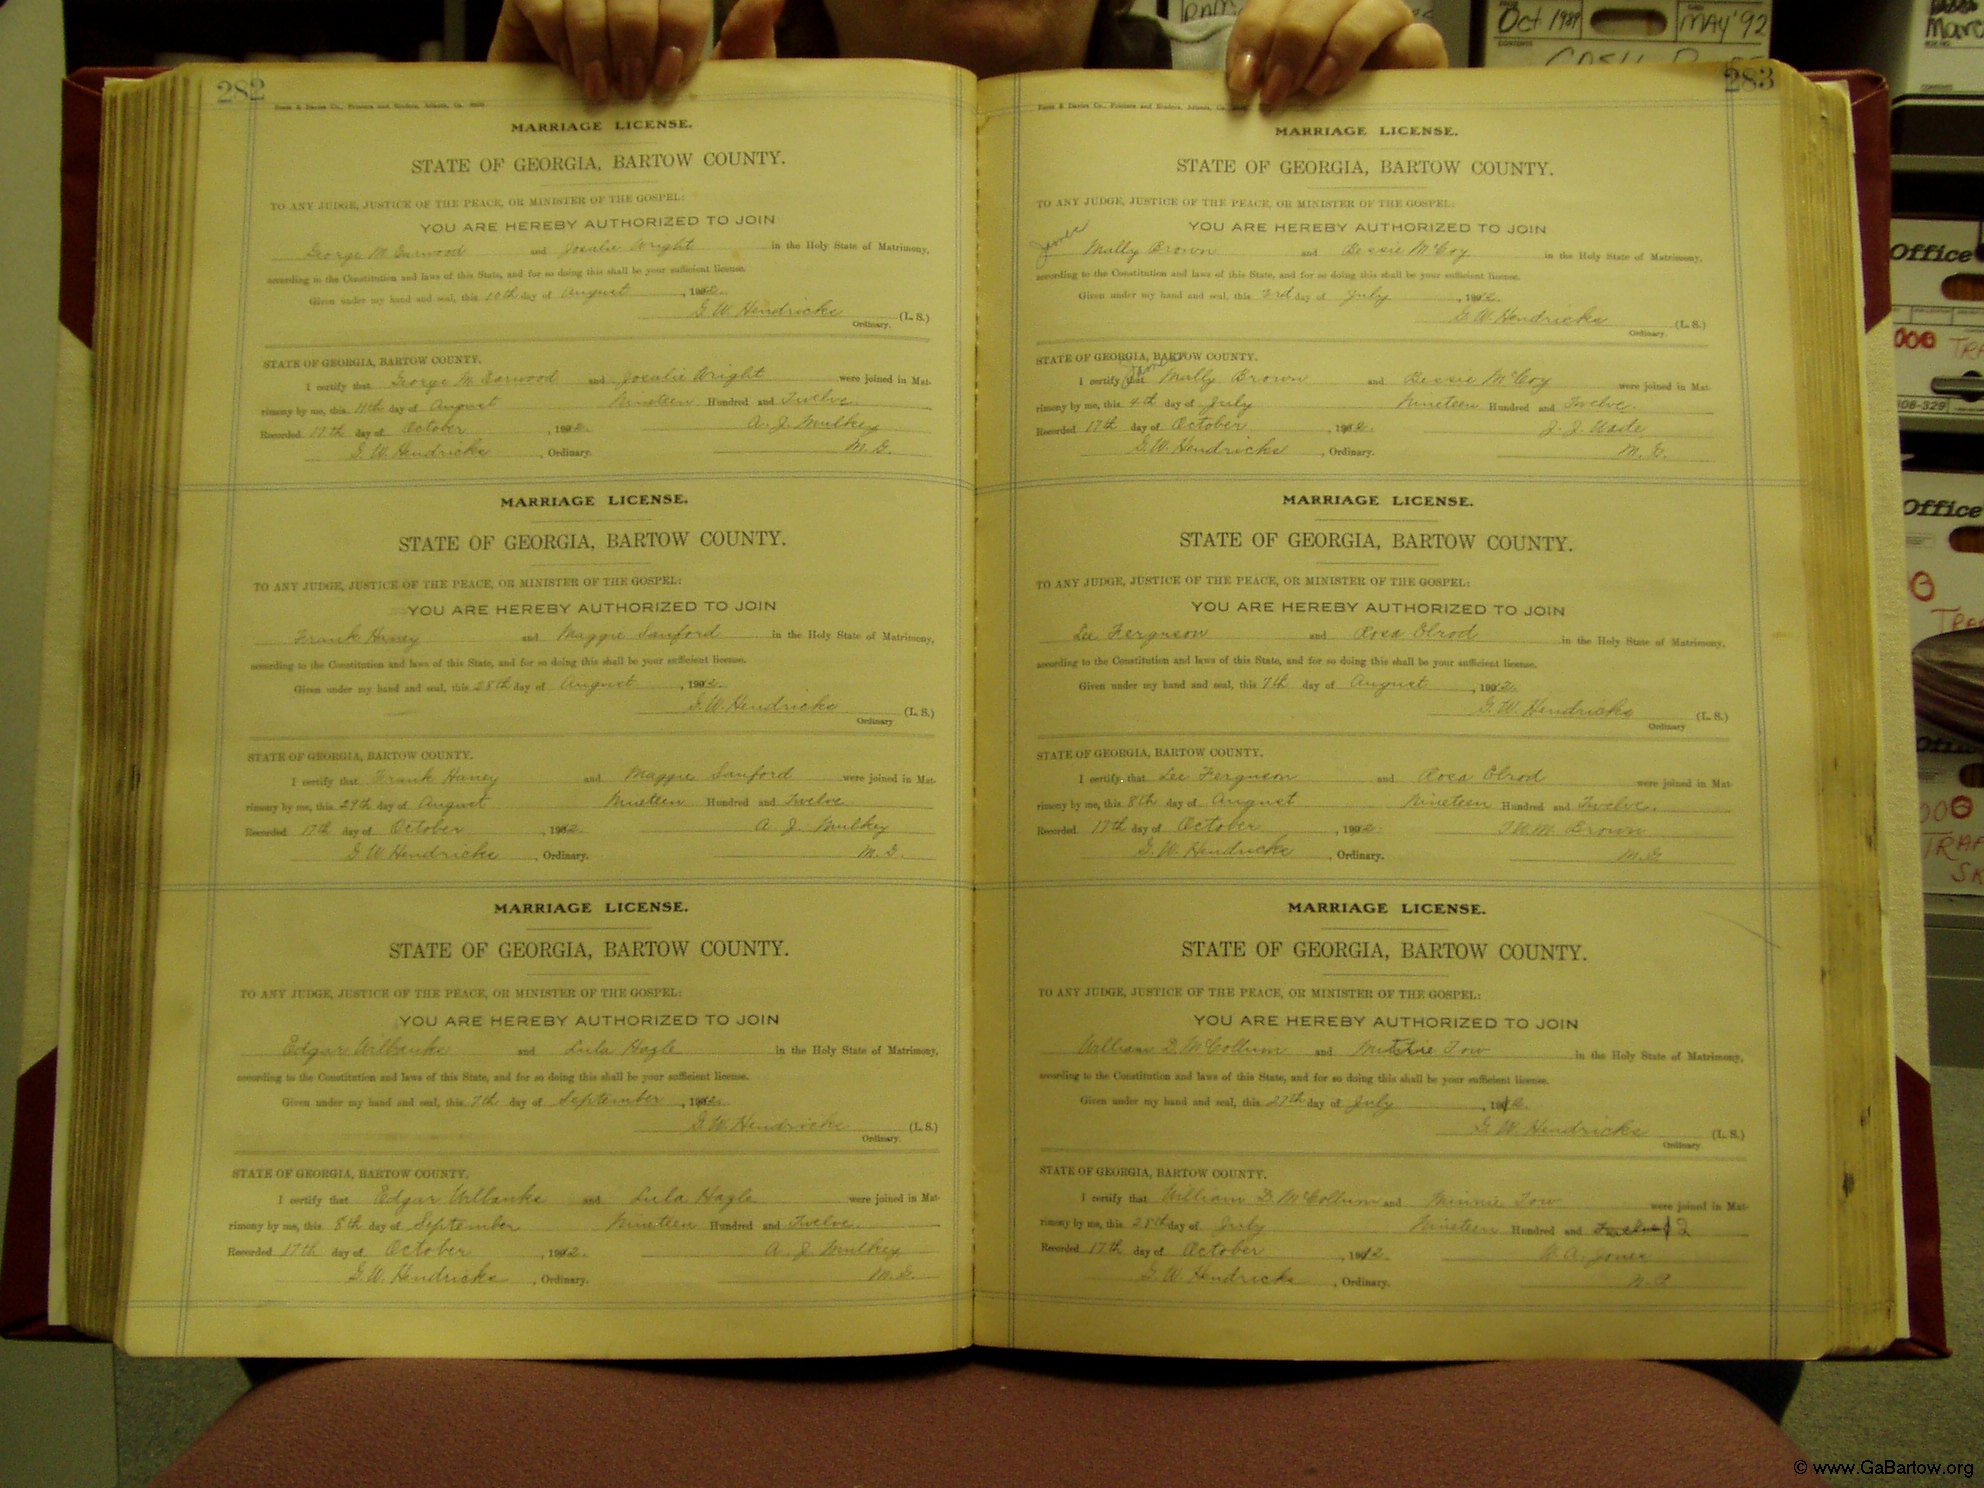 282
MARRIAGE LICENSE.
STATE OF GEORGIA, BARTOW COUNTY.
TO ANY JUDGE, JUSTICE OF THE PEACE, OR MINISTER OF THE GOSPEL:
YOU ARE HEREBY AUTHORIZED TO JOIN
George M. Earwood and Josalie Wright in the Holy State of Matrimony,
according to the Constitution and laws of this State, and for so doing this shall be your sufficient license.
Given under my hand and seal, this 10th day of August, 1912.
G. W. Hendricks (L. S.)
Ordinary.
STATE OF GEORGIA, BARTOW COUNTY.
I certify that George M. Earwood and Josalie Wright were joined in Mat-
rimony by me, this 11th day of August Nineteen Hundred and Twelve.
Recorded 17th day of October, 1912. A. J. Mulkey
G. W. Hendricks, Ordinary. M. G.
MARRIAGE LICENSE.
STATE OF GEORGIA, BARTOW COUNTY.
TO ANY JUDGE, JUSTICE OF THE PEACE, OR MINISTER OF THE GOSPEL:
YOU ARE HEREBY AUTHORIZED TO JOIN
Frank Haney and Maggie Sanford in the Holy State of Matrimony,
according to the Constitution and laws of this State, and for so doing this shall be your sufficient license.
Given under my hand and seal, this 28th day of August, 1912.
G. W. Hendricks (L. S.)
Ordinary
STATE OF GEORGIA, BARTOW COUNTY.
I certify that Frank Haney and Maggie Sanford were joined in Mat-
rimony by me, this 29th day of August Nineteen Hundred and Twelve
Recorded 17th day of October, 1912. A. J. Mulkey
G. W. Hendricks, Ordinary. M. G.
MARRIAGE LICENSE.
STATE OF GEORGIA, BARTOW COUNTY.
TO ANY JUDGE, JUSTICE OF THE PEACE, OR MINISTER OF THE GOSPEL:
YOU ARE HEREBY AUTHORIZED TO JOIN
Edgar Wilbanks and Lula Hagle in the Holy State of Matrimony,
according to the Constitution and laws of this State, and for so doing this shall be your sufficient license.
Given under my hand and seal, this 7th day of September, 1912.
G. W. Hendricks (L. S.)
Ordinary.
STATE OF GEORGIA, BARTOW COUNTY.
I certify that Edgar Wilbanks and Lula Hagle were joined in Mat-
rimony by me, this 8th day of September Nineteen Hundred and Twelve
Recorded 17th day of October, 1912. A. J. Mulkey
G. W. Hendricks, Ordinary. M. G.
283
MARRIAGE LICENSE.
STATE OF GEORGIA, BARTOW COUNTY.
TO ANY JUDGE, JUSTICE OF THE PEACE, OR MINISTER OF THE GOSPEL:
YOU ARE HEREBY AUTHORIZED TO JOIN
James Mally Brown and Bessie McCoy in the Holy State of Matrimony,
according to the Constitution and laws of this State, and for so doing this shall be your sufficient license.
Given under my hand and seal, this 3rd day of July, 1912.
G. W. Hendricks (L. S.)
Ordinary.
STATE OF GEORGIA, BARTOW COUNTY.
I certify that James Mally Brown and Bessie McCoy were joined in Mat-
rimony by me, this 4th day of July Nineteen Hundred and Twelve.
Recorded 17th day of October, 1912. J. J.
G. W. Hendricks, Ordinary. M. G.
MARRIAGE LICENSE.
STATE OF GEORGIA, BARTOW COUNTY.
TO ANY JUDGE, JUSTICE OF THE PEACE, OR MINISTER OF THE GOSPEL:
YOU ARE HEREBY AUTHORIZED TO JOIN
Lee Ferguson and Rosa Elrod in the Holy State of Matrimony,
according to the Constitution and laws of this State, and for so doing this shall be your sufficient license.
Given under my hand and seal, this 7th day of August, 1912.
G. W. Hendricks (L. S.)
Ordinary
STATE OF GEORGIA, BARTOW COUNTY.
I certify that Lee Ferguson and Rosa Elrod were joined in Mat-
rimony by me, this 8th day of August Nineteen Hundred and Twelve.
Recorded 17th day of October, 1912. Brown
G. W. Hendricks, Ordinary. M. G.
MARRIAGE LICENSE.
STATE OF GEORGIA, BARTOW COUNTY.
TO ANY JUDGE, JUSTICE OF THE PEACE, OR MINISTER OF THE GOSPEL:
YOU ARE HEREBY AUTHORIZED TO JOIN
William D. McCollum and Mittie Tow in the Holy State of Matrimony,
according to the Constitution and laws of this State, and for so doing this shall be your sufficient license.
Given under my hand and seal, this 27th day of July, 1912.
G. W. Hendricks (L. S.)
Ordinary.
STATE OF GEORGIA, BARTOW COUNTY.
I certify that William D. McCollum and Minnie Tow were joined in Mat-
rimony by me, this 28th day of July Nineteen Hundred and 12
Recorded 17th day of October, 1912. W. A. Jones
G. W. Hendricks, Ordinary. N. P.
Oct 1989 MAY '92
Office
Office
© www.GaBartow.org